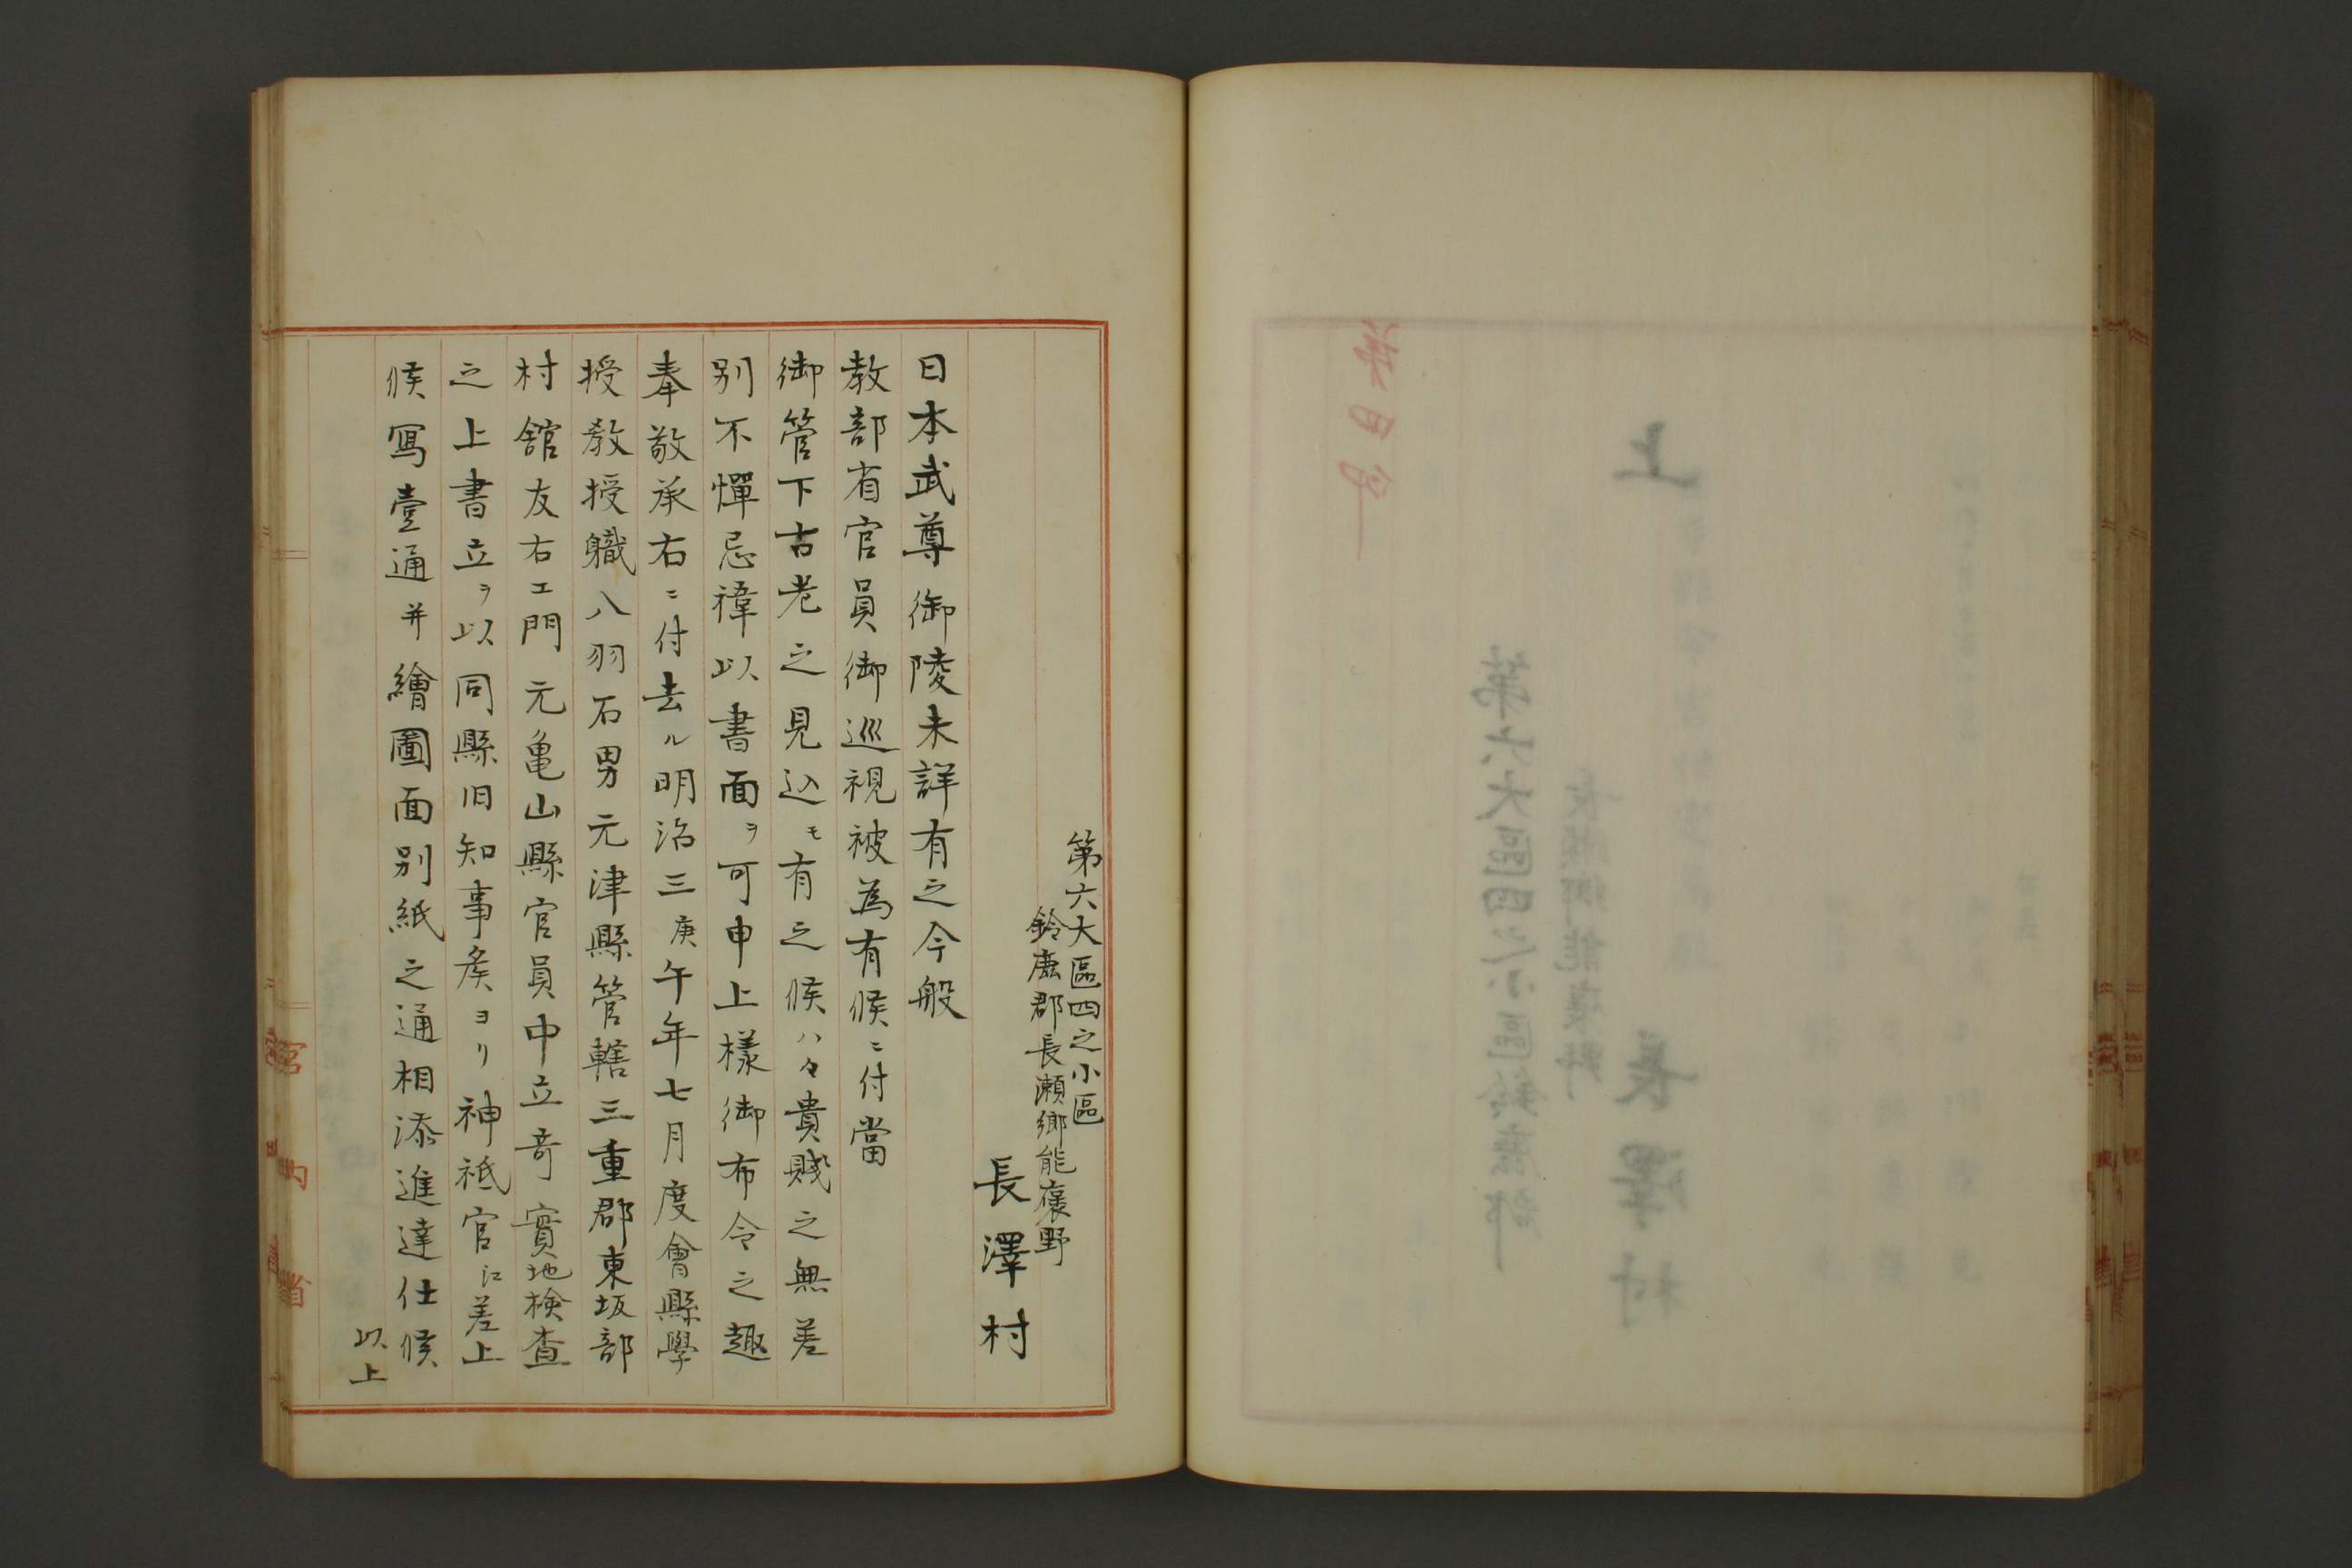 第六大區四之小區
鈴鹿郡長瀬郷能褒野
長澤村
日本武尊御陵未詳有之今般
教部省官員御巡視被為有候ニ付當
御管下古老之見込モ有之候ハヽ貴賤之無差
別不憚忌諱以書面ヲ可申上樣御布令之趣
奉敬承右ニ付去ル明治三庚午年七月度會縣學
授教授職八羽石男元津縣管轄三重郡東坂部
村舘友右エ門元亀山縣官員中立竒實地檢査
之上書立ヲ以同縣旧知事矦ヨリ神祇官江差上
候寫壹通并繪圖面別紙之通相添進達仕候
以上
宮内省